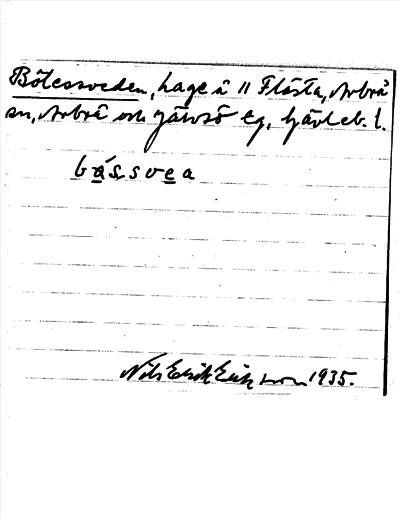 Bötessveden, hage å 11 Flästa, Arbrå
sn, Arbrå och Järvsö tg, Gävleb. l.
bás,svea
Nils Erik Eriksson 1935.